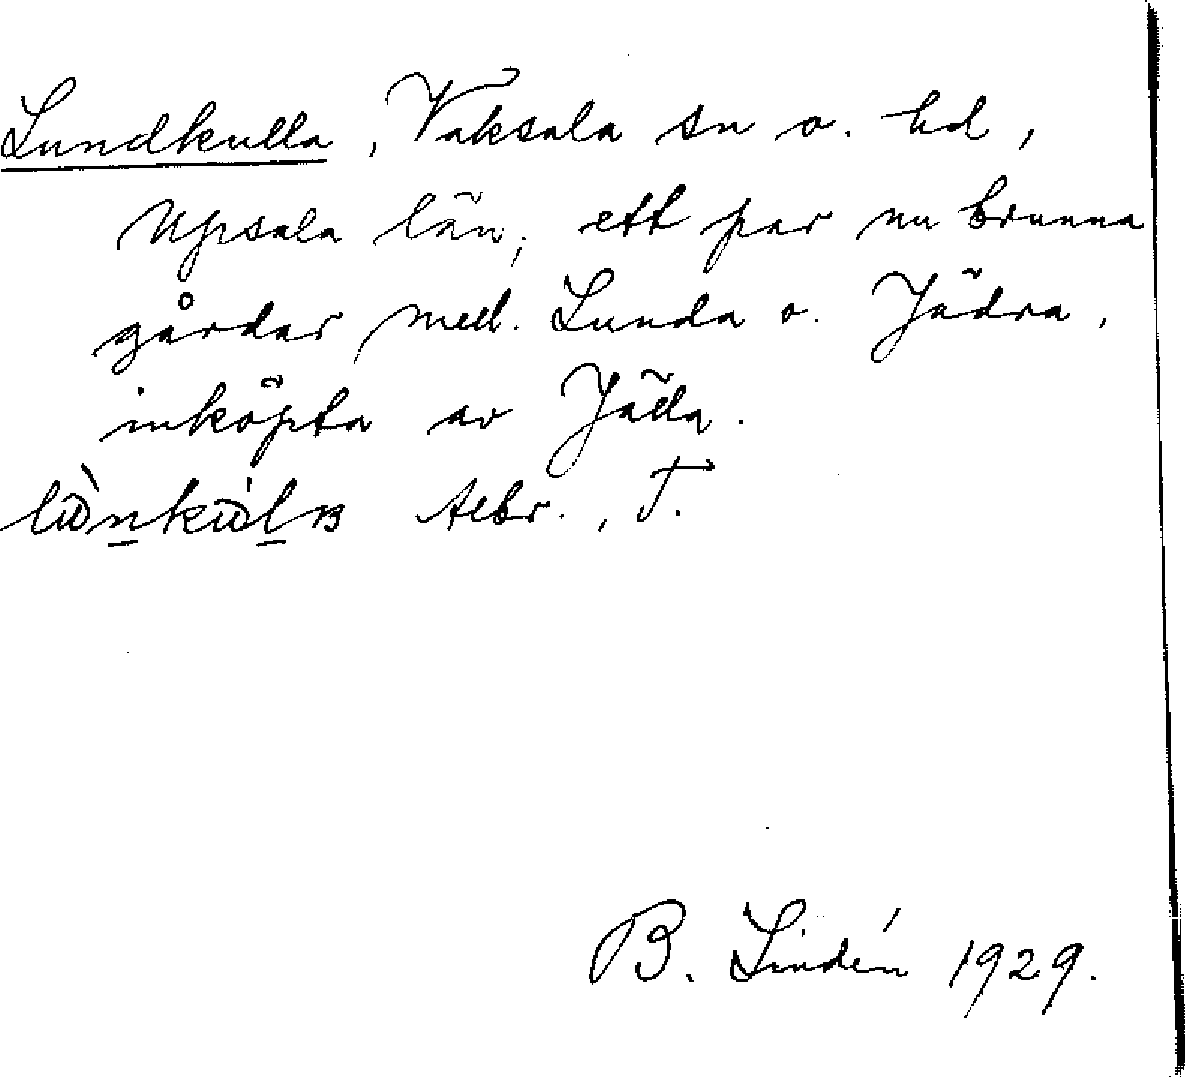 Lundkulla, Vaksala sn o. hd,
Upsala län, ett par nu brunna
gårdar med. Lunda o. Jädra,
inköpta av Jälla.
Aebr., T.
B. Lindén 1929.